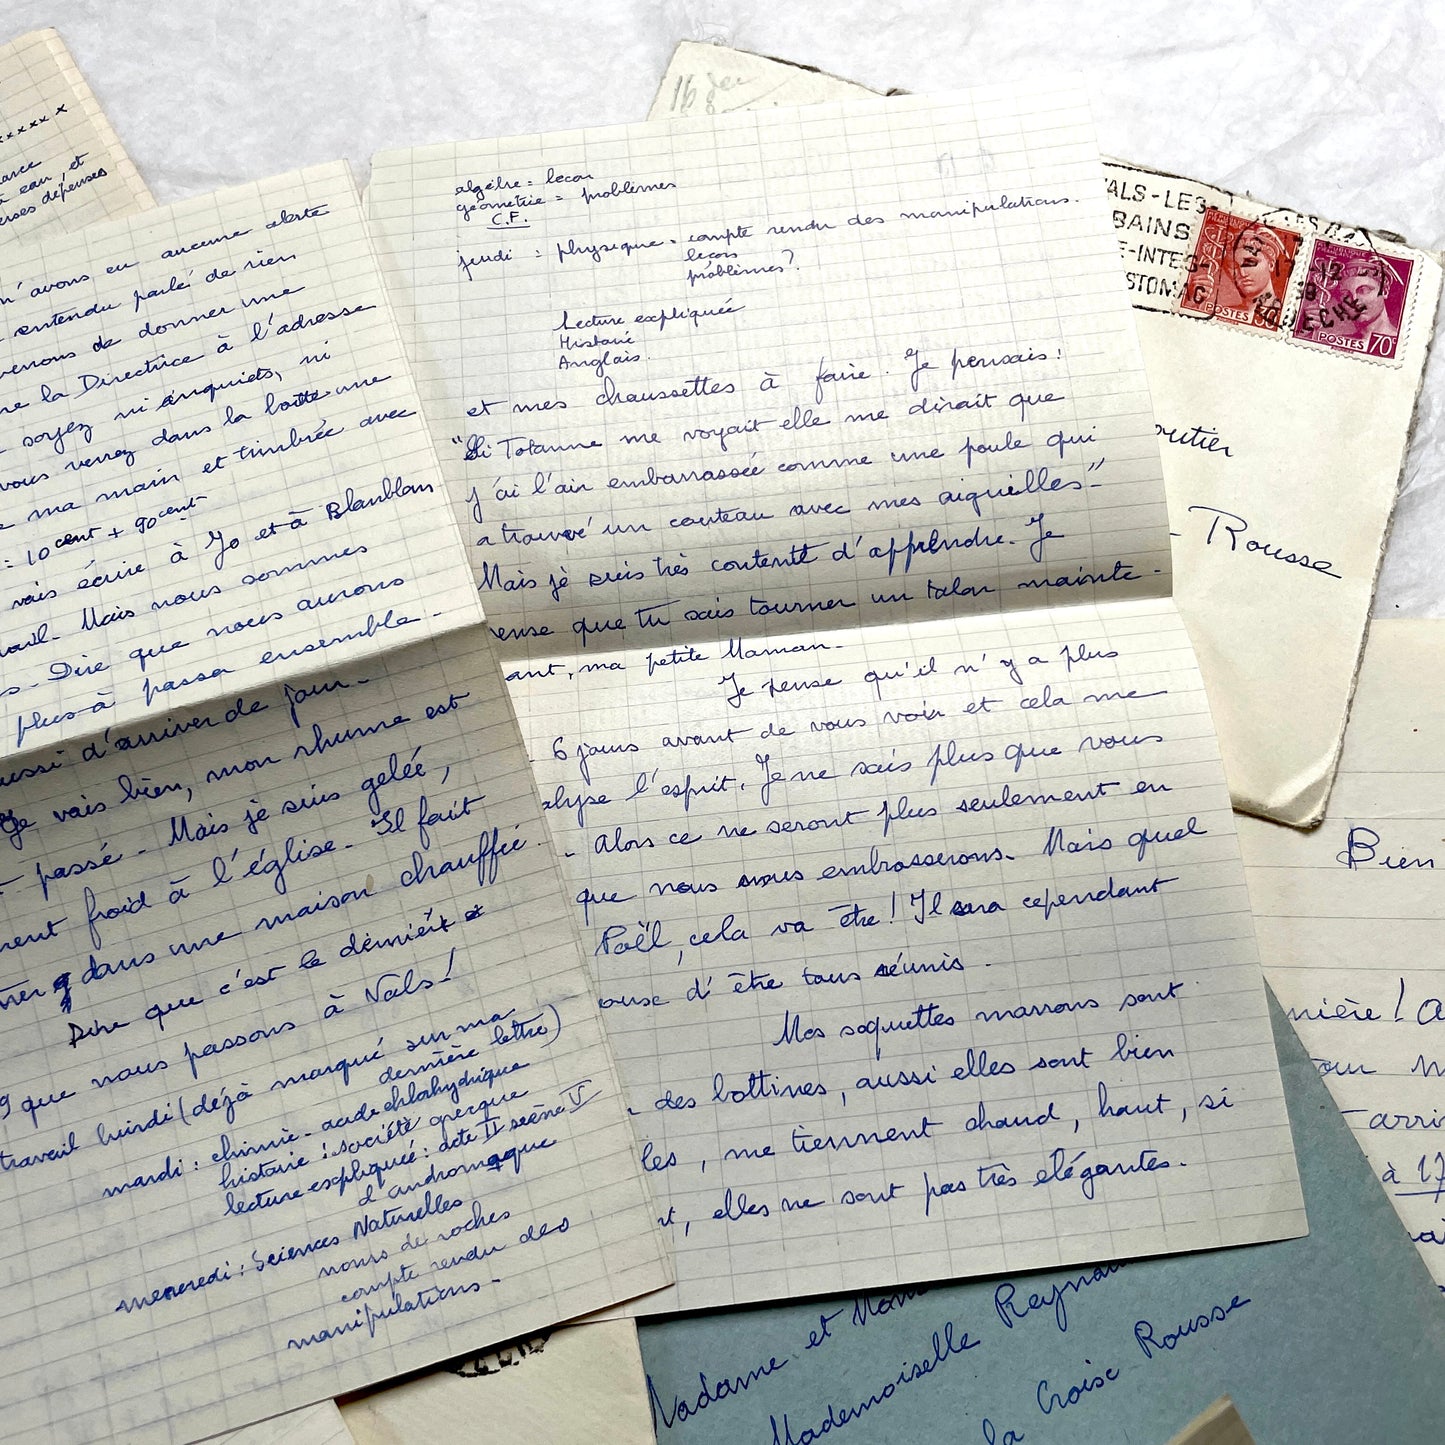 16 dec
eau, et
erses dépenses
n'avons eu aucune alerte
entendu parlé de rien
venons de donner une
la Directrice à l'adresse
soyez ni inquiets, ni
vous verrez dans la boîte une
ma main et timbrée avec
= 10 cent + 90 cent
vais écrire à Jo et à Blanblan
Mais nous sommes
Dire que nous aurons
plus à passa ensemble.
aussi d'arriver de jour.
Je vais bien, mon rhume est
passé - Mais je suis gelée,
froid à l'église. Il fait
dans une maison chauffée.
Dire que c'est le dernier
9 que nous passons à Vals!
travail lundi (déjà marqué sur ma
dernière lettre)
mardi : chimie - acide chlorhydrique
histoire : société grecque
lecture expliquée : acte II scène V
d'andromaque
mercredi : Sciences Naturelles
noms de roches
compte rendu des
manipulations -
algèbre = leçon
géometrie = problèmes
C.F.
jeudi = physique = compte rendu des manipulations.
leçon
problèmes?
Lecture expliquée
Histoire
Anglais.
et mes chaussettes à faire. Je pensais :
"Si Totanne me voyait elle me dirait que
j'ai l'air embarrassée comme une poule qui
a trouvé un couteau avec mes aiguilles"-
Mais je suis très contente d'apprendre. Je
ense que tu sais tourner un talon mainte-
ant, ma petite Maman.
Je pense qu'il n'y a plus
6 jours avant de vous voir et cela me
alyse l'esprit. Je ne sais plus que vous
. Alors ce ne seront plus seulement en
que nous nous embrasserons. Mais quel
Noël, cela va être! Il sera cependant
ouse d'être tous réunis.
Mes soquettes marrons sont
des bottines, aussi elles sont bien
les, me tiennent chaud, haut, si
t, elles ne sont pas très élégantes.
VALS-LES-
BAINS
E-INTES-
STOMAC
17-12
38
ARDECHE
POSTES
POSTES 70c
outier
- Rousse
Bien
nière! a
our
arri
à 17
Madame et Mon
Mademoiselle Reynau
la Croix Rousse